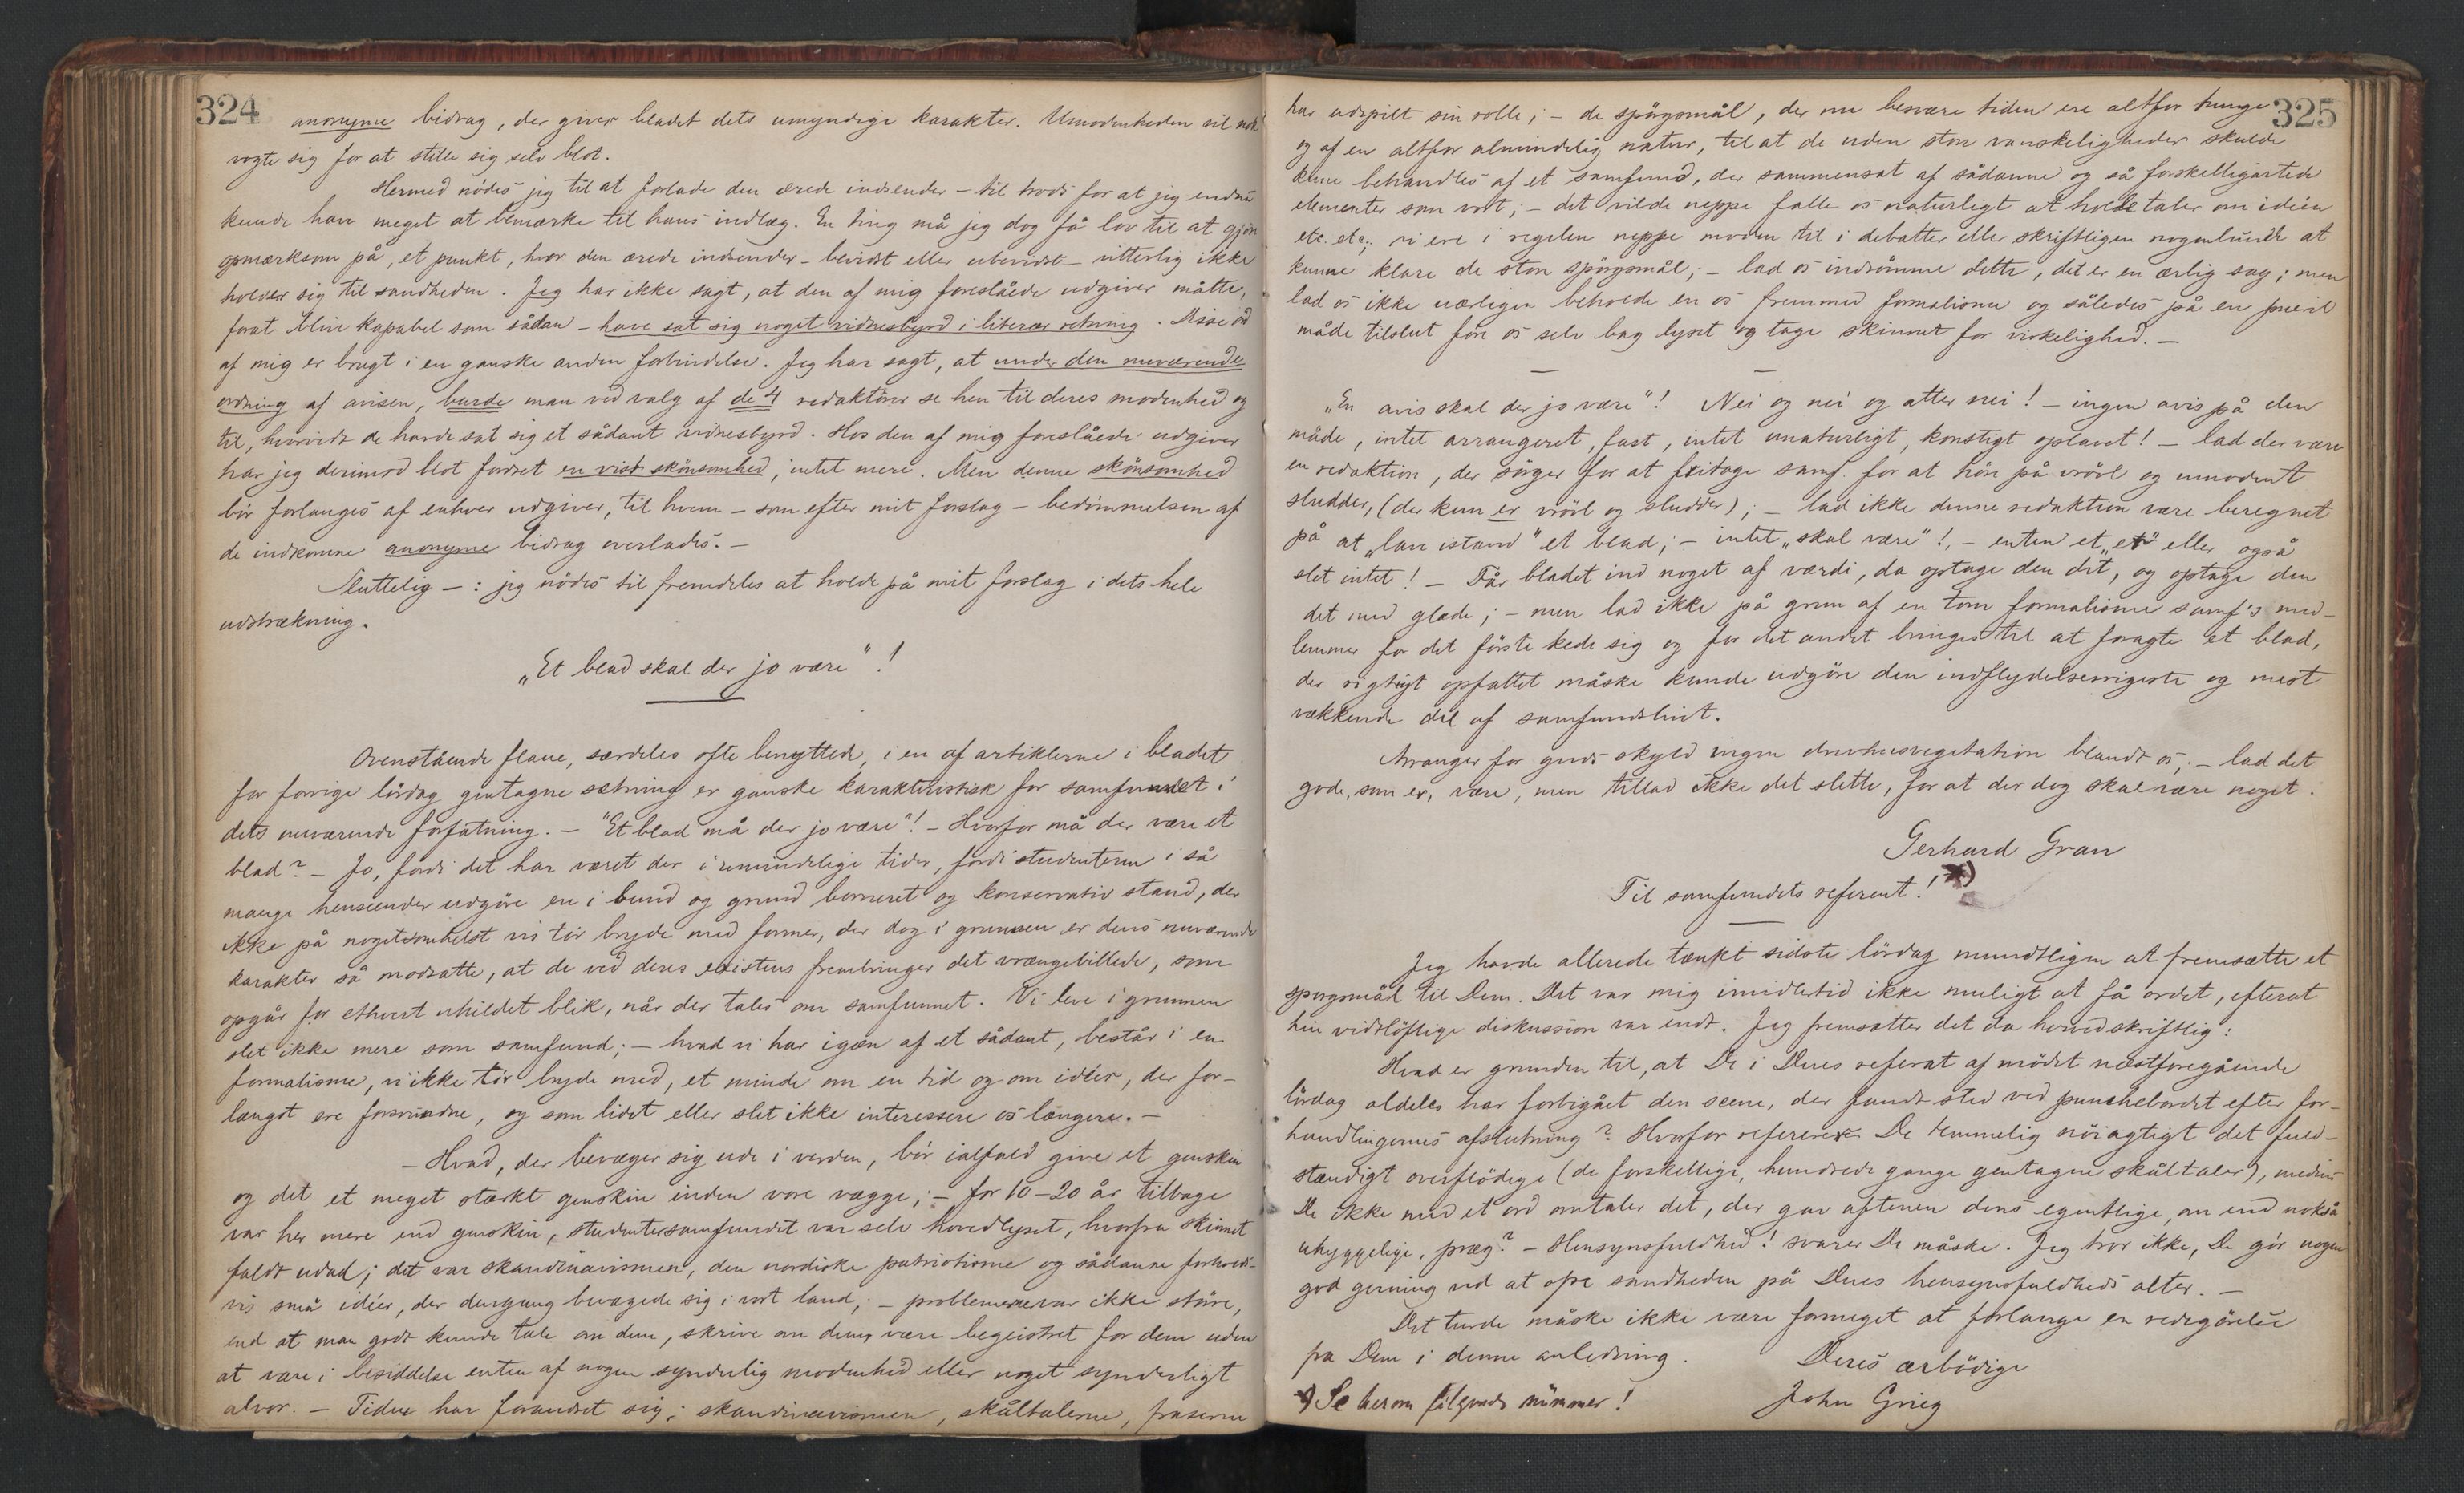 324
anonyme bidrag, der giver bladet dets umyndige karakter. Umodenheden vil nok
vogte sig for at stille sig selv blot.
Hermed nødes jeg til at forlade den ærede indsender – til trods for at jeg endnu
kunde have meget at bemærke til hans indlæg. En ting må jeg dog få lov til at gjøre
opmærksom på, et punkt, hvor den ærede indsender – bevidst eller ubevidst – vitterlig ikke
holder sig til sandheden. Jeg har ikke sagt, at den af mig foreslåede udgiver måtte,
forat blive kapabel som sådan – have sat sig noget vidnesbyrd i literær retning. Disse ord
af mig er brugt i en ganske anden forbindelse. Jeg har sagt, at under den nuværende
ordning af avisen, burde man ved valg af de 4 redaktører se hen til deres modenhed og
til, hvorvidt de havde sat sig et sådant vidnesbyrd. Hos den af mig foreslåede udgiver
har jeg derimod blot fordret en vist skönsomhed, intet mere. Men denne skönsomhed
bör forlanges af enhver udgiver, til hvem – som efter mit forslag – bedömmelsen af
de indkomne anonyme bidrag overlades. –
Sluttelig – : jeg nödes til fremdeles at holde på mit forslag i dets hele
udstrækning.
„Et blad skal der jo være"!
Ovenstående flaue, særdeles ofte benyttede, i en af artiklerne i bladet
for forrige lördag gentagne sætning er ganske karakteristisk for samfundet i
dets nuværende forfatning. – "Et blad må der jo være"! – Hvorfor må der være et
blad? – Jo, fordi det har været der i umindelige tider, fordi studenterne i så
mange henseender udgöre en i bund og grund borneret og konservativ stand, der
ikke på nogetsomhelst vis tör bryde med former, der dog i grunnen er dens nuværende
karakter så modsatte, at de ved deres existens frembringer det vrængebillede, som
opgår for ethvert uhildet blik, når der tales om samfunnet. Vi leve i grunnen
slet ikke mere som samfund; – hvad vi har igæn af et sådant, består i en
formalisme, vi ikke tör bryde med, et minde om en tid og om idéer, der for-
længst ere forsvundne, og som lidet eller slet ikke interessere os længere. –
– Hvad, der bevæger sig ude i verden, bör ialfald give et genskin
og det et meget stærkt genskin inden vore vægge; – for 10–20 år tilbage
var her mere end genskin, studentersamfundet var selv hovedlyset, hvorfra skinnet
faldt udad; det var skandinavismen, den nordiske patriotisme og sådanne forholds-
vis små idéer, der dengang bevægede sig i vort land; – problemerne var ikke större,
end at man godt kunde tale om dem, skrive om dem, være begeistret for dem uden
at være i besiddelse enten af nogen synderlig modenhed eller noget synderligt
alvor. – Tiden har forandret sig; skandinavismen, skåltalerne, fraserne
325
har udspilt sin rolle; – de spörgsmål, der nu besvære tiden ere altfor tunge
og af en altfor almindelig natur, til at de uden store vanskeligheder skulde
kunne behandles af et samfund, der sammensat af sådanne og så forskelligartede
elementer som vort; – det vilde neppe falle os naturligt at holde taler om idéen
etc. etc; vi ere i regelen neppe modne til i debatter eller skriftligen nogenlunde at
kunne klare de store spörgsmål; – lad os indrömme dette, det er en ærlig sag; men
lad os ikke uærligen beholde en os fremmed formalisme og således på en pueril
måde tilslut före os selv bag lyset og tage skinnet for virkelighed. –
„En avis skal der jo være"! Nei og nei og atter nei! – ingen avis på den
måde, intet arrangeret, fast, intet unaturligt, konstigt oplavet! – lad der være
en redaktion, der sörger for at fritage samf. for at höre på vrövl og umodent
sludder, (der kun er vrövl og sludder); – lad ikke denne redaktion være beregnet
på at „lave istand" et blad; – intet „skal være"!, – enten et „er" eller også
slet intet! – Får bladet ind noget af værdi, da optage den det, og optage den
det med glæde; – men lad ikke på grun af en tom formalisme samf's med-
lemmer for det förste kede sig og for det andet bringes til at foragte et blad,
der rigtigt opfattet måske kunde udgöre den indflydelsesrigeste og mest
vækkende del af samfundslivet.
Arranger for guds skyld ingen drivhusvegetation blandt os; – lad det
gode, som er, være, men tillad ikke det slette, for at der dog skal være noget.
Gerhard Gran
Til samfundets referent! *)
Jeg havde allerede tænkt sidste lördag mundtligen at fremsætte et
spørgsmål til Dem. Det var mig imidlertid ikke muligt at få ordet, efterat
hin vidtlöftige diskussion var endt. Jeg fremsætter det da herved skriftlig:
Hvad er grunden til, at De i Deres referat af mödet næstforegående
lördag aldeles har forbigået den scene, der fandt sted ved punschebordet efter for-
handlingernes afslutning? Hvorfor referere De temmelig nöiagtigt det fuld-
stændigt overflödige (de forskellige, hundrede gange gentagne skåltaler), medens
De ikke med et ord omtaler det, der gav aftenen dens egentlige, om end også
uhyggelige, præg? – Hensynsfuldhed! svarer De måske. Jeg tror ikke, De gör nogen
god gerning ved at ofre sandheden på Deres hensynsfuldheds alter. –
Det turde måske ikke være formeget at forlange en redegörelse
fra Dem i denne anledning.
Deres ærbödige
John Grieg
*) Se herom fölgende nummer!